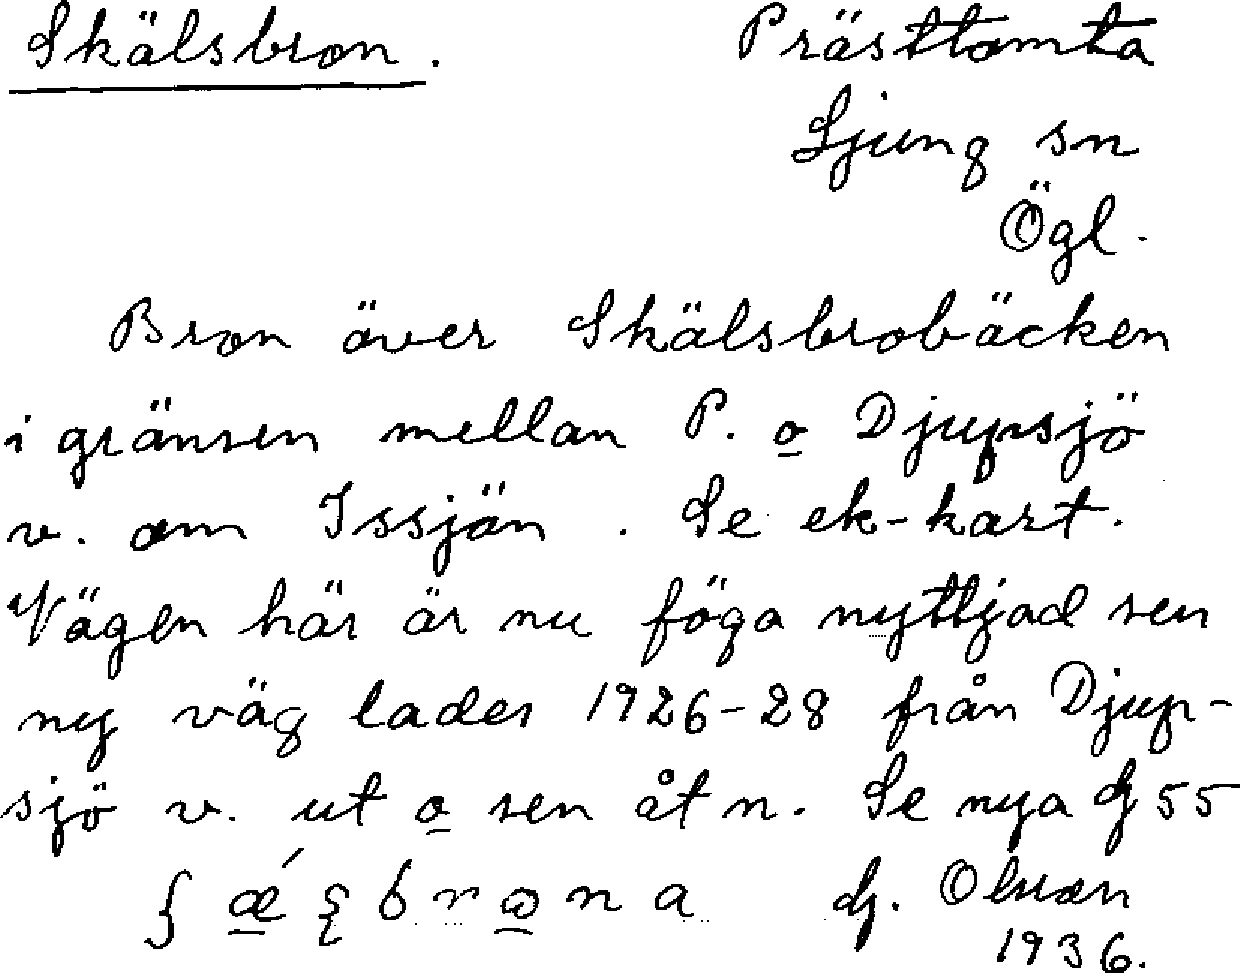 Skälsbron. Prästtomta
Ljung sn
Ögl.
Bron över Skälsbrobäcken
i gränsen mellan P. o Djupsjö
v. om Issjön. Se ek-kart.
Vägen här är nu föga nyttjad sen
ny väg lades 1926-28 från Djup-
sjö v. ut o sen åt n. Se nya G 55
G. Olson
1936.